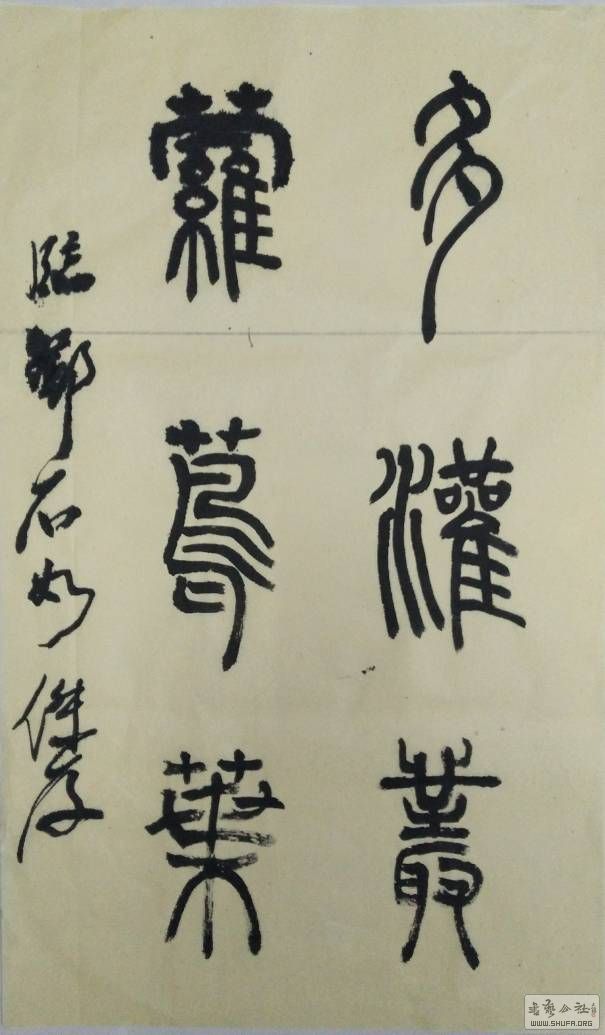 多灌叢
蘿蔦葉
臨鄧石如傑
书艺公社
WWW.SHUFA.ORG